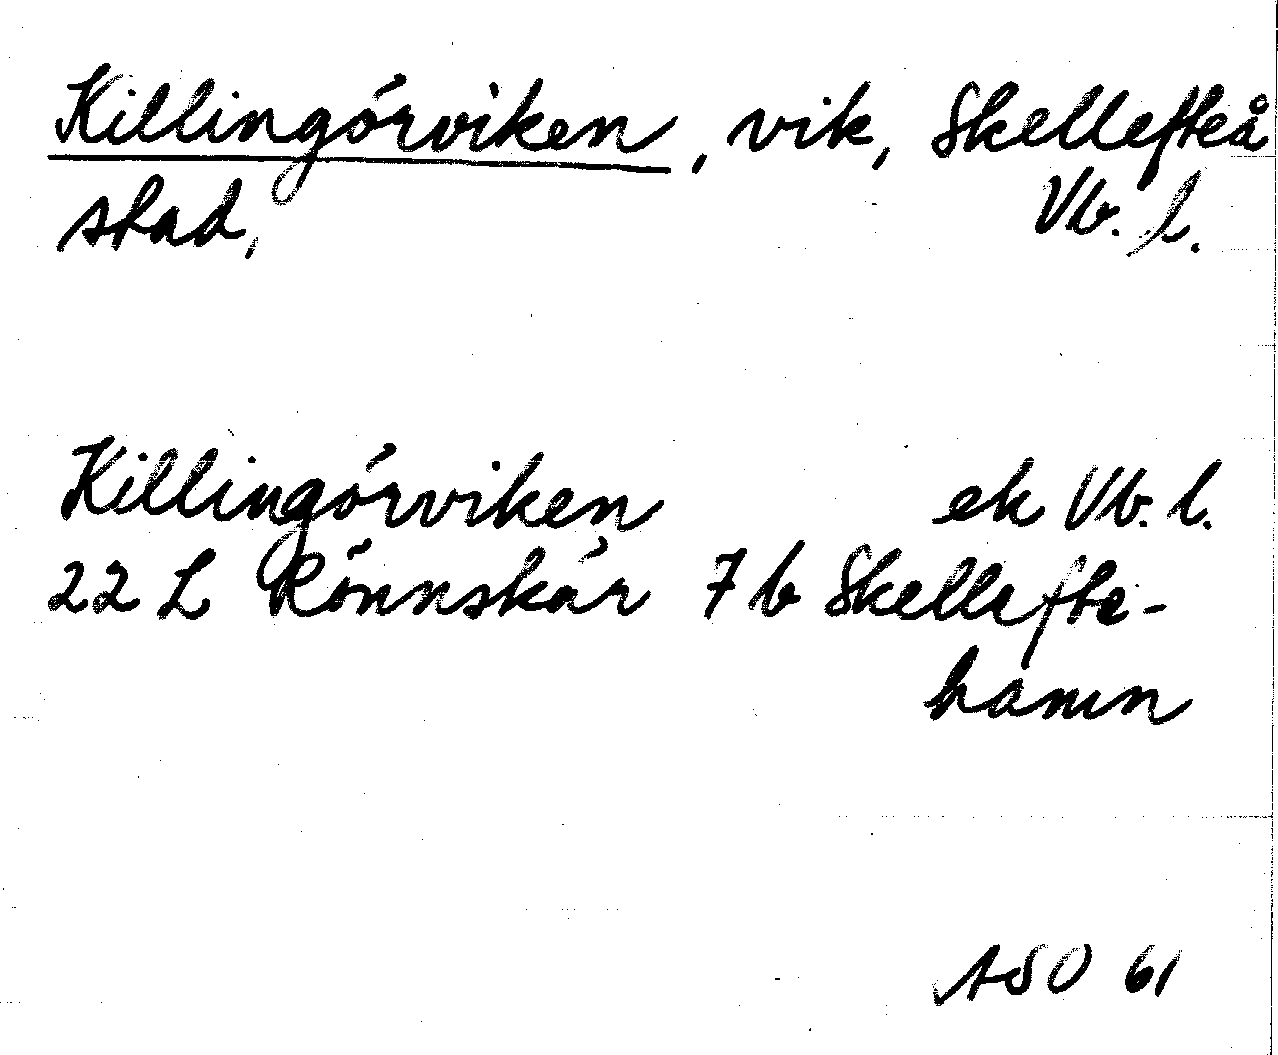 Killingörviken, vik, Skellefteå
stad, Vb. l.
Killingörviken ek Vb. l.
22 L Rönnskär 7 b Skellefte-
hamn
ASO 61